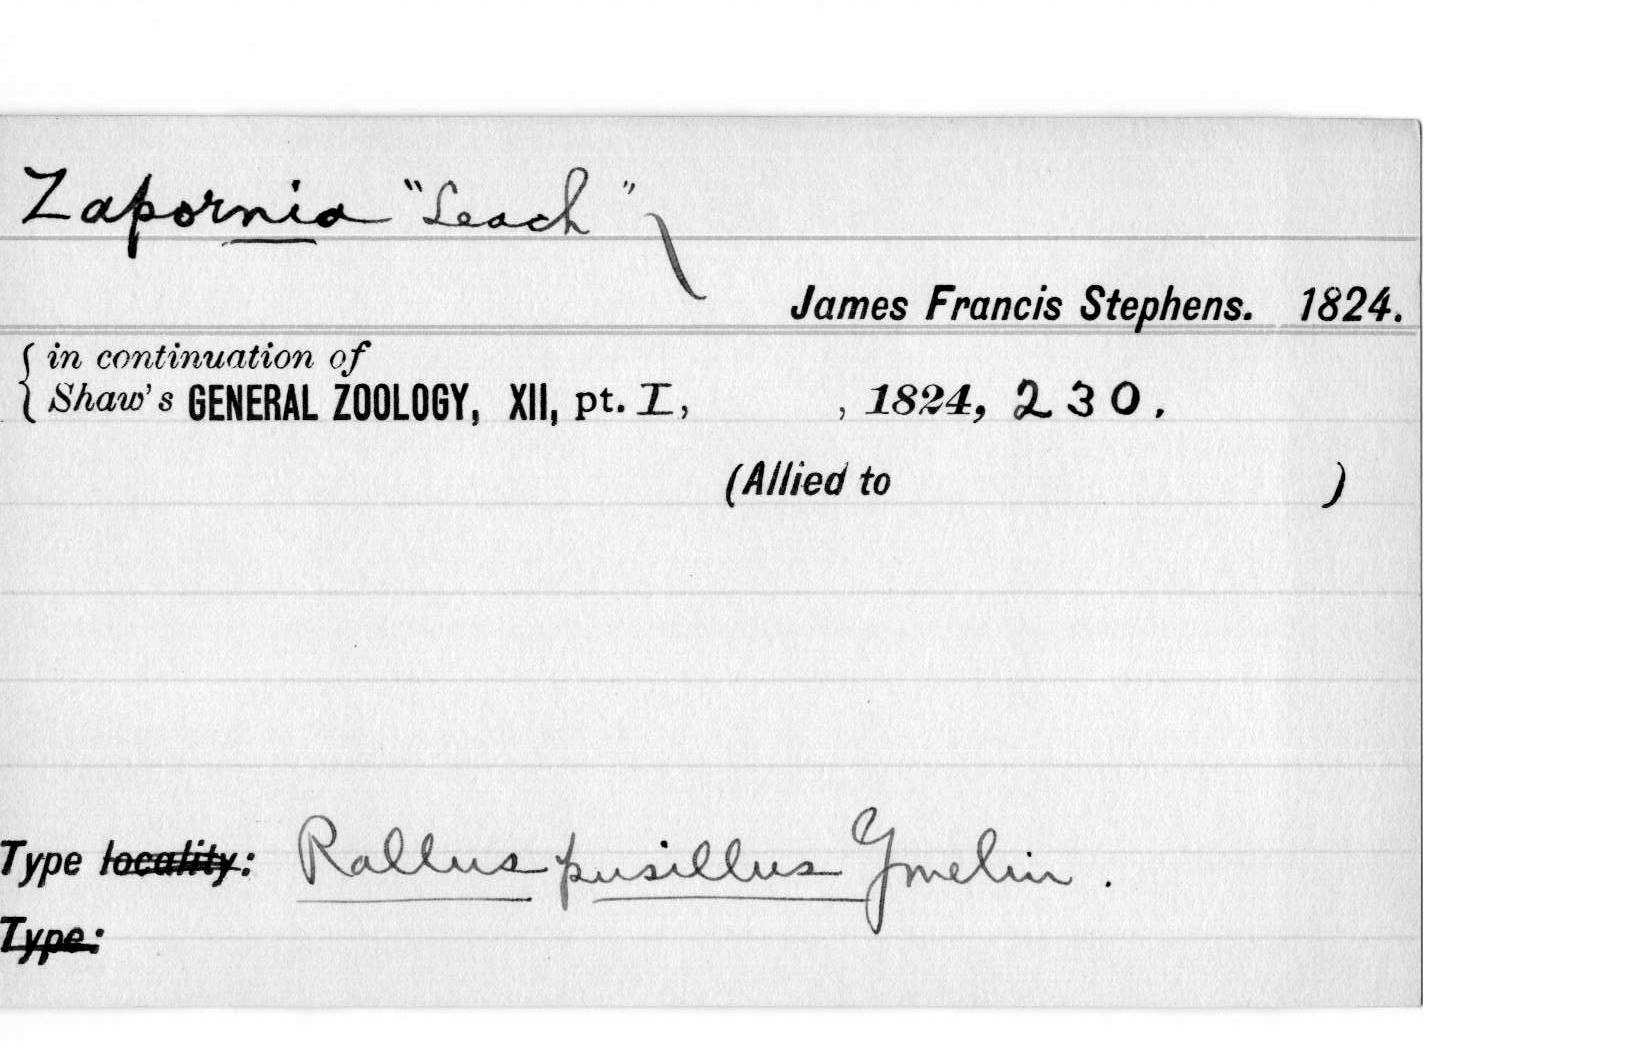 Zapornia "Leach"
James Francis Stephens. 1824.
in continuation of
Shaw's GENERAL ZOOLOGY, XII, pt. I, , 1824, 230.
(Allied to )
Type locality: Rallus pusillus Gmelin.
Type: